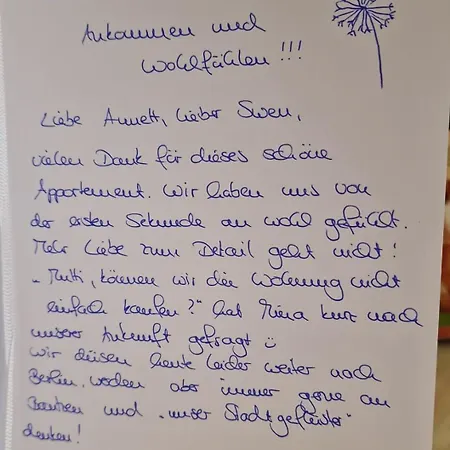 Ankommen und
Wohlfühlen!!!
Liebe Annett, lieber Swen,
vielen Dank für dieses schöne
Appartement. Wir haben uns von
der ersten Sekunde an wohl gefühlt.
Mehr Liebe zum Detail geht nicht!
"Mutti, können wir die Wohnung nicht
einfach kaufen?" hat Mina kurz nach
unserer Ankunft gefragt ü
Wir düsen heute leider weiter nach
Berlin, werden aber immer gerne an
Bautzen und "unser Stadtgeflüster"
denken!